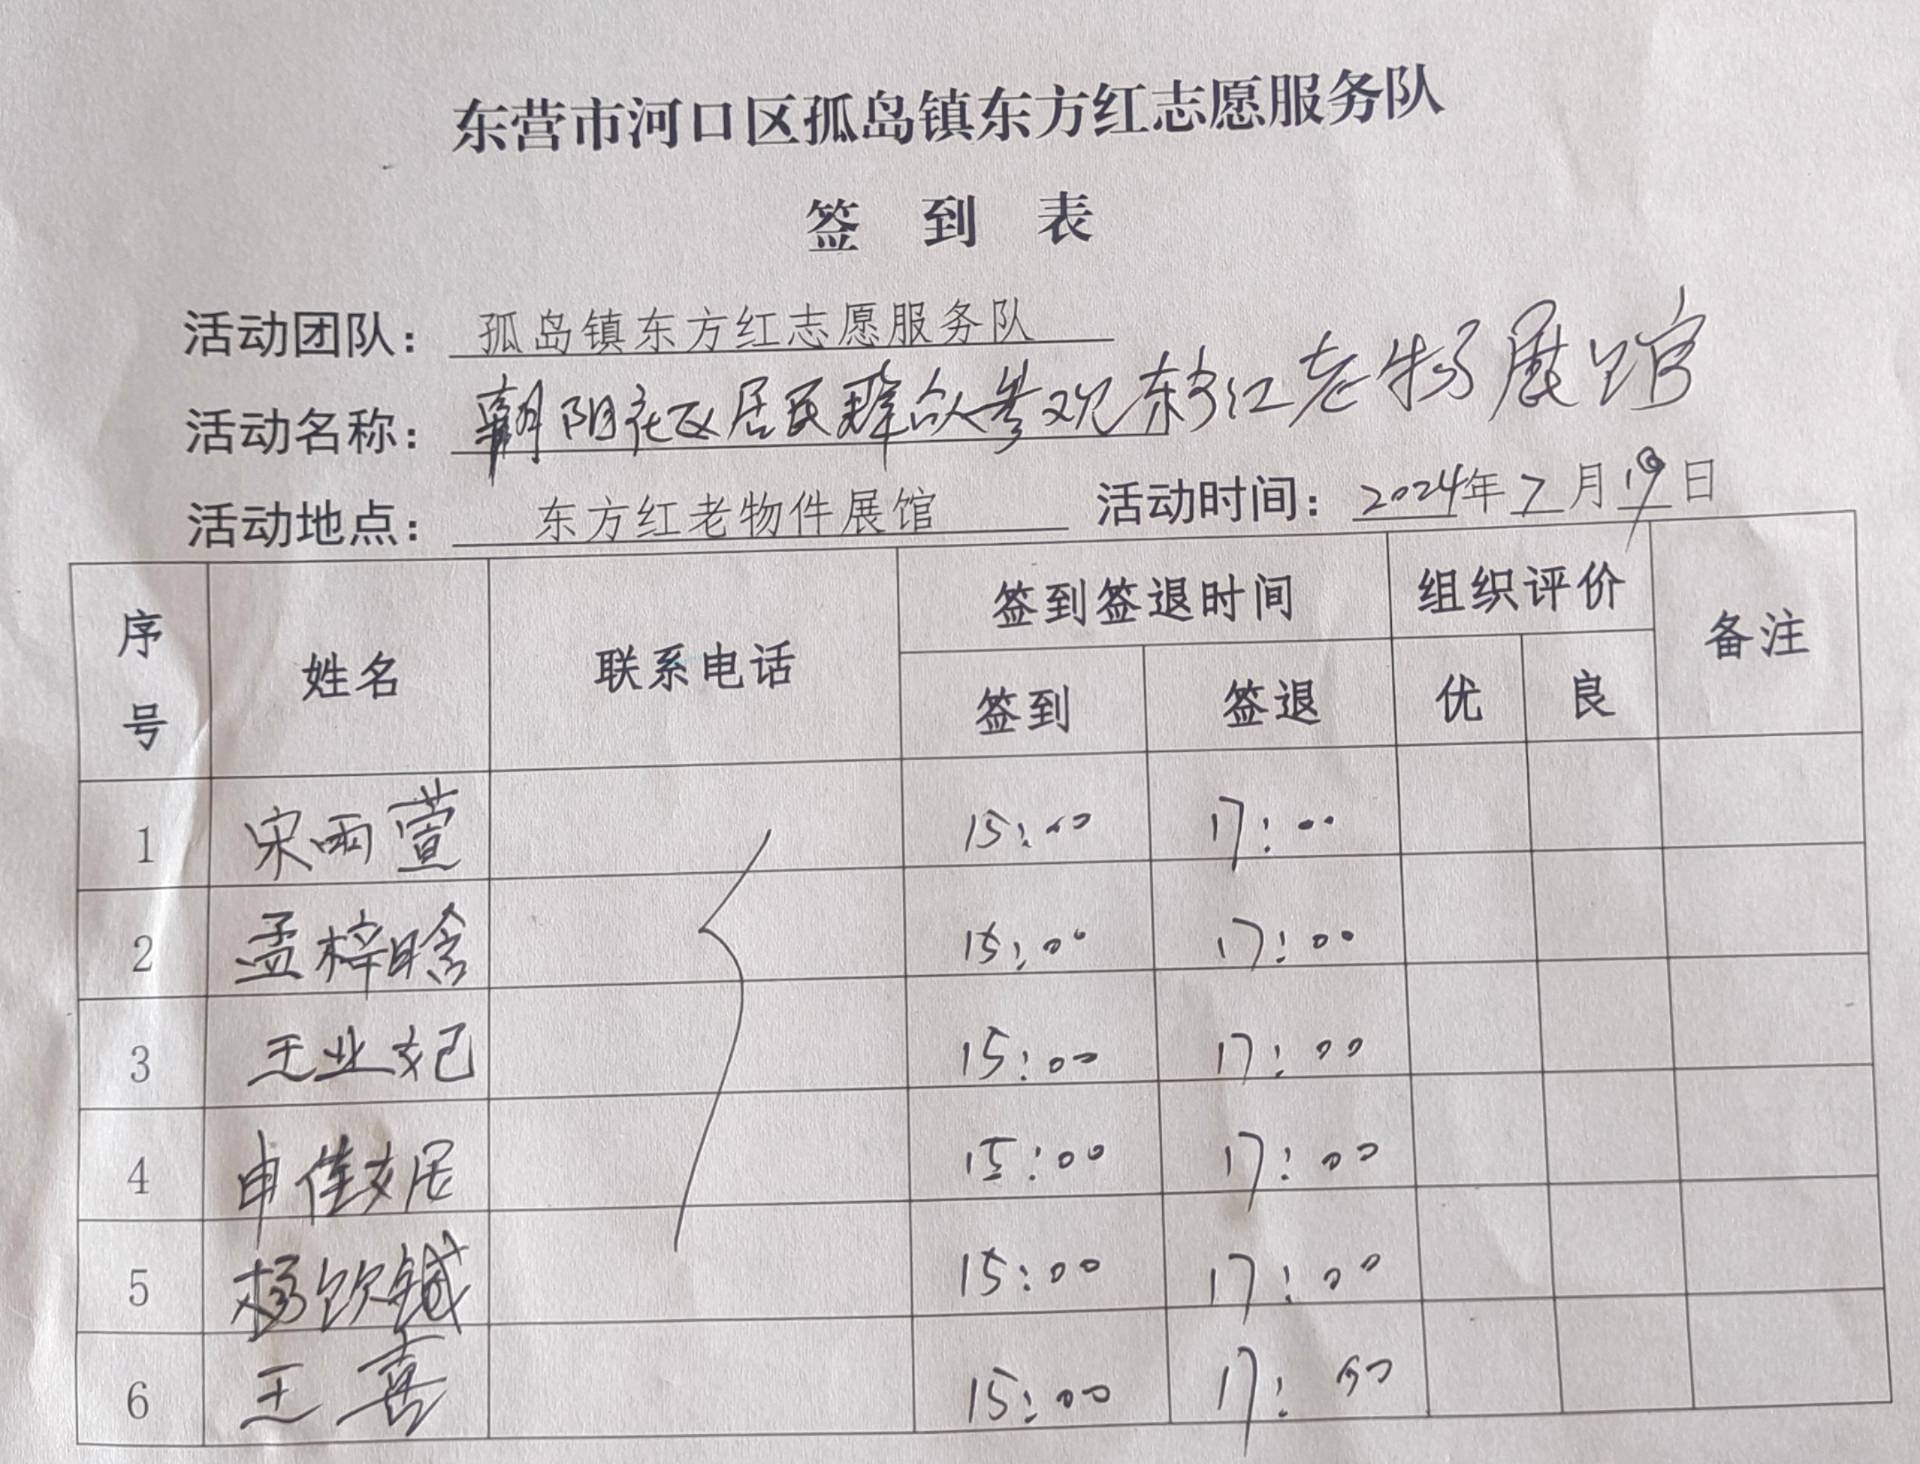 东营市河口区孤岛镇东方红志愿服务队
签 到 表
活动团队： 孤岛镇东方红志愿服务队
活动名称： 朝阳社区居民群众参观东方红老物展馆
活动地点： 东方红老物件展馆 活动时间：2024年7月19日
序号 姓名 联系电话 签到签退时间 组织评价 备注
签到 签退 优 良
1 宋雨萱 15:00 17:00
2 孟梓晗 15:00 17:00
3 王业妃 15:00 17:00
4 申佳妮 15:00 17:00
5 杨钦铖 15:00 17:00
6 王喜 15:00 17:00